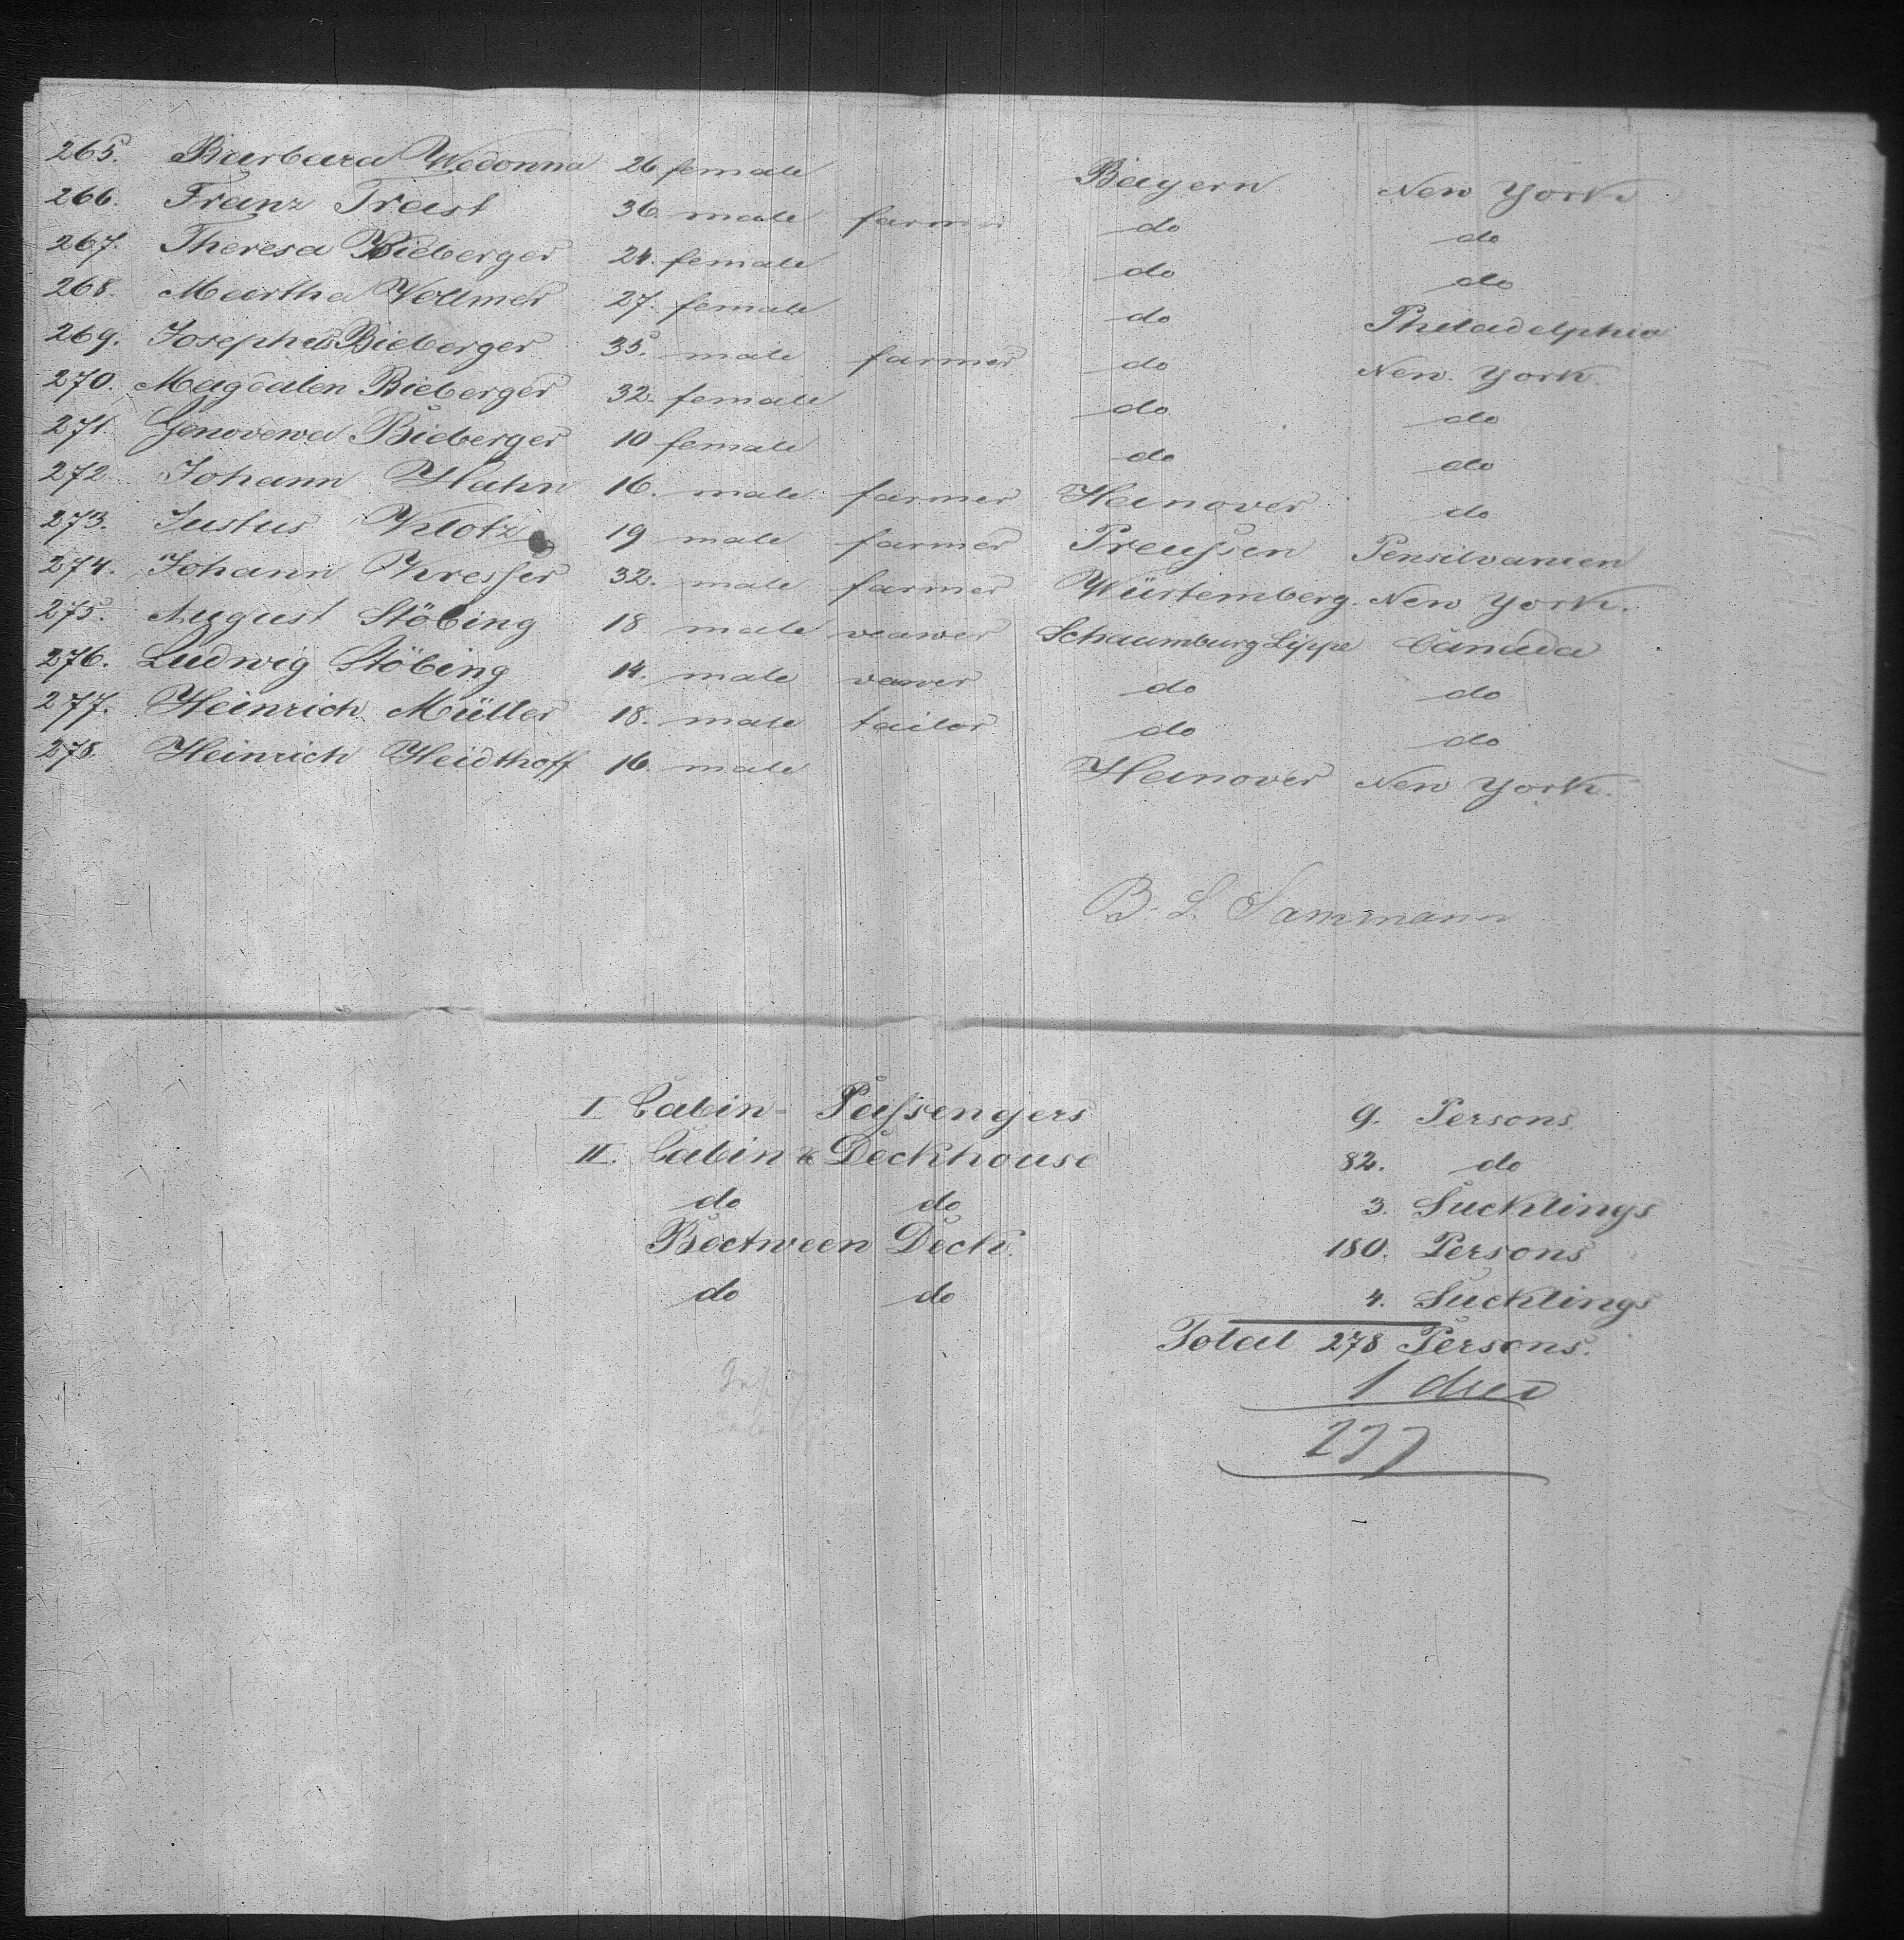 265. Barbara Wodonna 26 female Bayern New York
266. Franz Trast 36 male farmer do do
267. Theresa Bieberger 24. female do do
268. Martha Vollmer 27. female do Philadelphia
269. Josephus Bieberger 35. male farmer do New York.
270. Magdalen Bieberger 32. female do do
271. Genovewa Bieberger 10 female do do
272. Johann Hahn 16. male farmer Hanover do
273. Justus Klotz 19 male farmer Preußen Pensilvanien
274. Johann Kresser 32. male farmer Würtemberg. New York.
275. August Stöbing 18 male veawer Schaumburg Lippe Canada
276. Ludwig Stöbing 14. male vawer do do
277. Heinrich Müller 18. male tailor do do
278. Heinrich Heidthoff 16. male Hanover New York.
B. L. Sammann
I Cabin-Paßengers 9. Persons.
II. Cabin & Deckhouse 82. do
do do 3. Sucklings
Beetween Deck. 180. Persons
do do 4. Sucklings
Total 278 Persons.
1 died
277